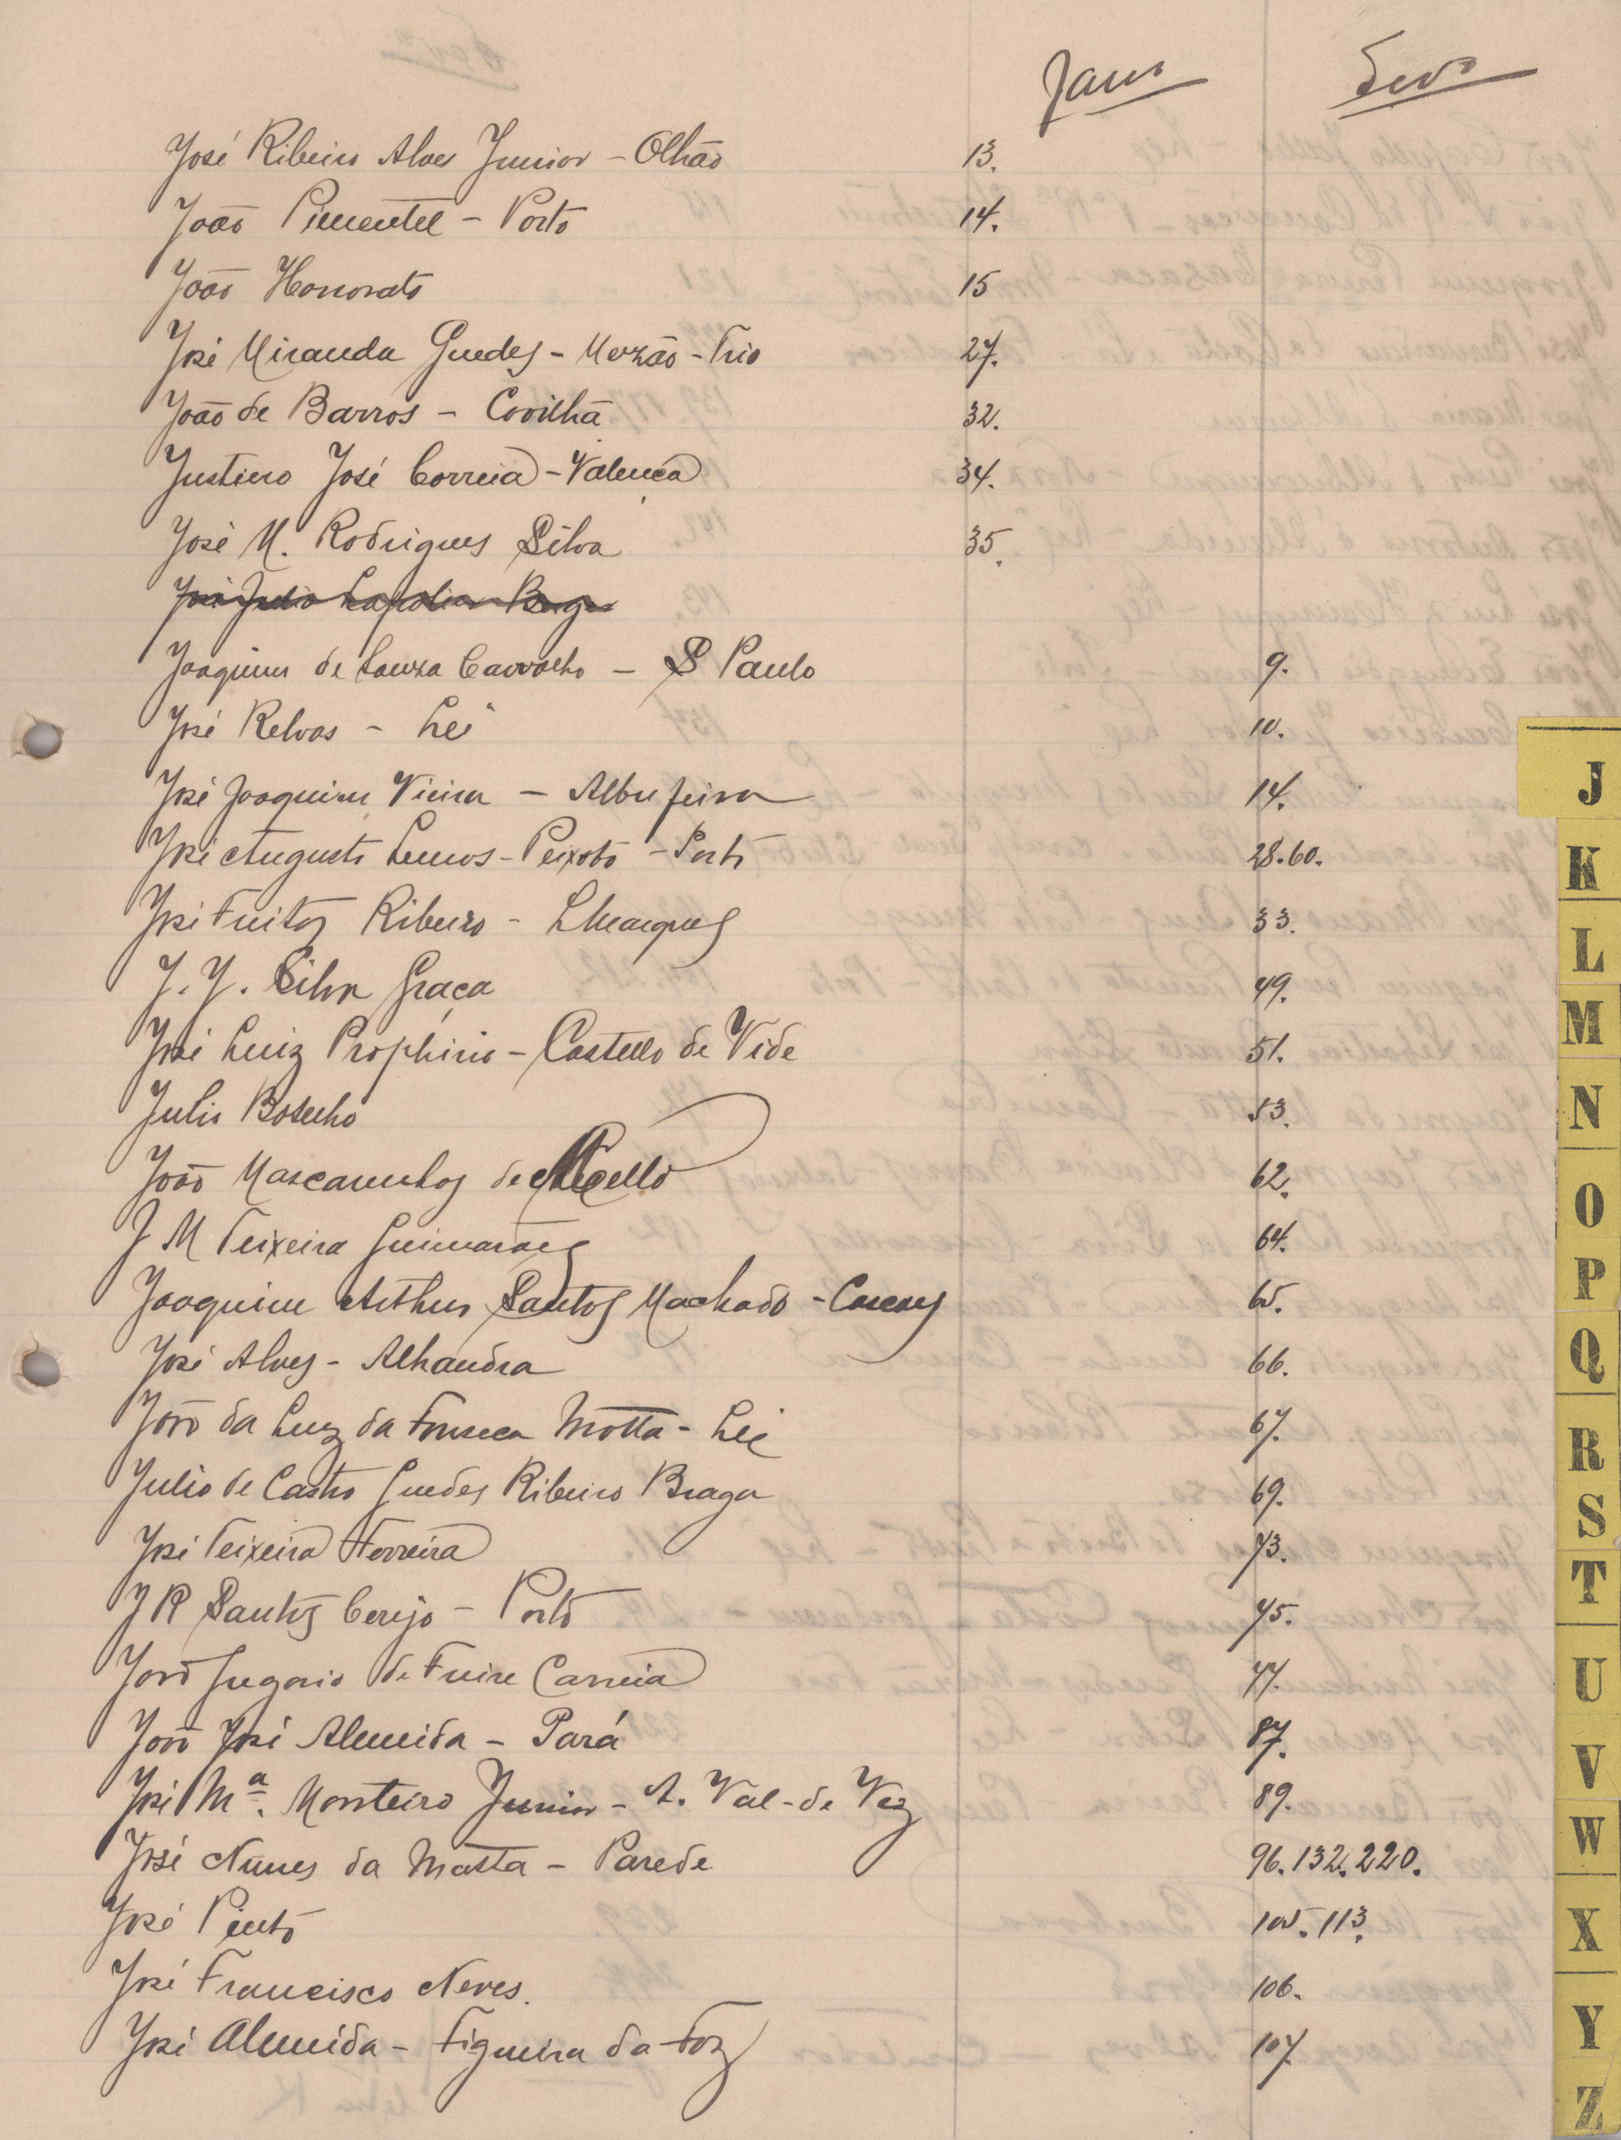 Janº Fevº
José Ribeiro Alves Junior - Olhão 13.
João Pimentel - Porto 14.
João Honorato 15
José Miranda Guedes - Mezão - Frio 27.
João de Barros - Covilhã 32.
Justino José Correia - Valença 34.
José M. Rodrigues Silva 35.
Joaquim de Souza Carvalho - S Paulo 9.
José Relvas - 10.
José Joaquim Vieira - Albufeira 14.
José Augusto Lemos - Peixoto - Porto 28.60.
José Freitas Ribeiro - LMarques 33.
J. J. Silva Graça 49.
José Luiz Prophirio - Castello de Vide 51.
Julio Botelho 53.
João Mascarenhas de Mello 62.
J M Teixeira Guimarães 64.
Joaquim Arthur Santos Machado - 65.
José Alves - Alhandra 66.
João da Luz da Fonseca Motta - 67.
Julio de Castro Guedes Ribeiro Braga 69.
José Teixeira Ferreira 73.
J R Santos Cerejo - Porto 75.
João Gregorio de Freire Correia 77.
João José Almeida - Pará 87.
José Mª. Monteiro Junior - A. Val-de Vez 89.
José Nunes da Matta - Parede 96.132.220.
José Pinto 105.113.
José Francisco Neves. 106.
José Almeida - Figueira da Foz 107
J
K
L
M
N
O
P
Q
R
S
T
U
V
W
X
Y
Z